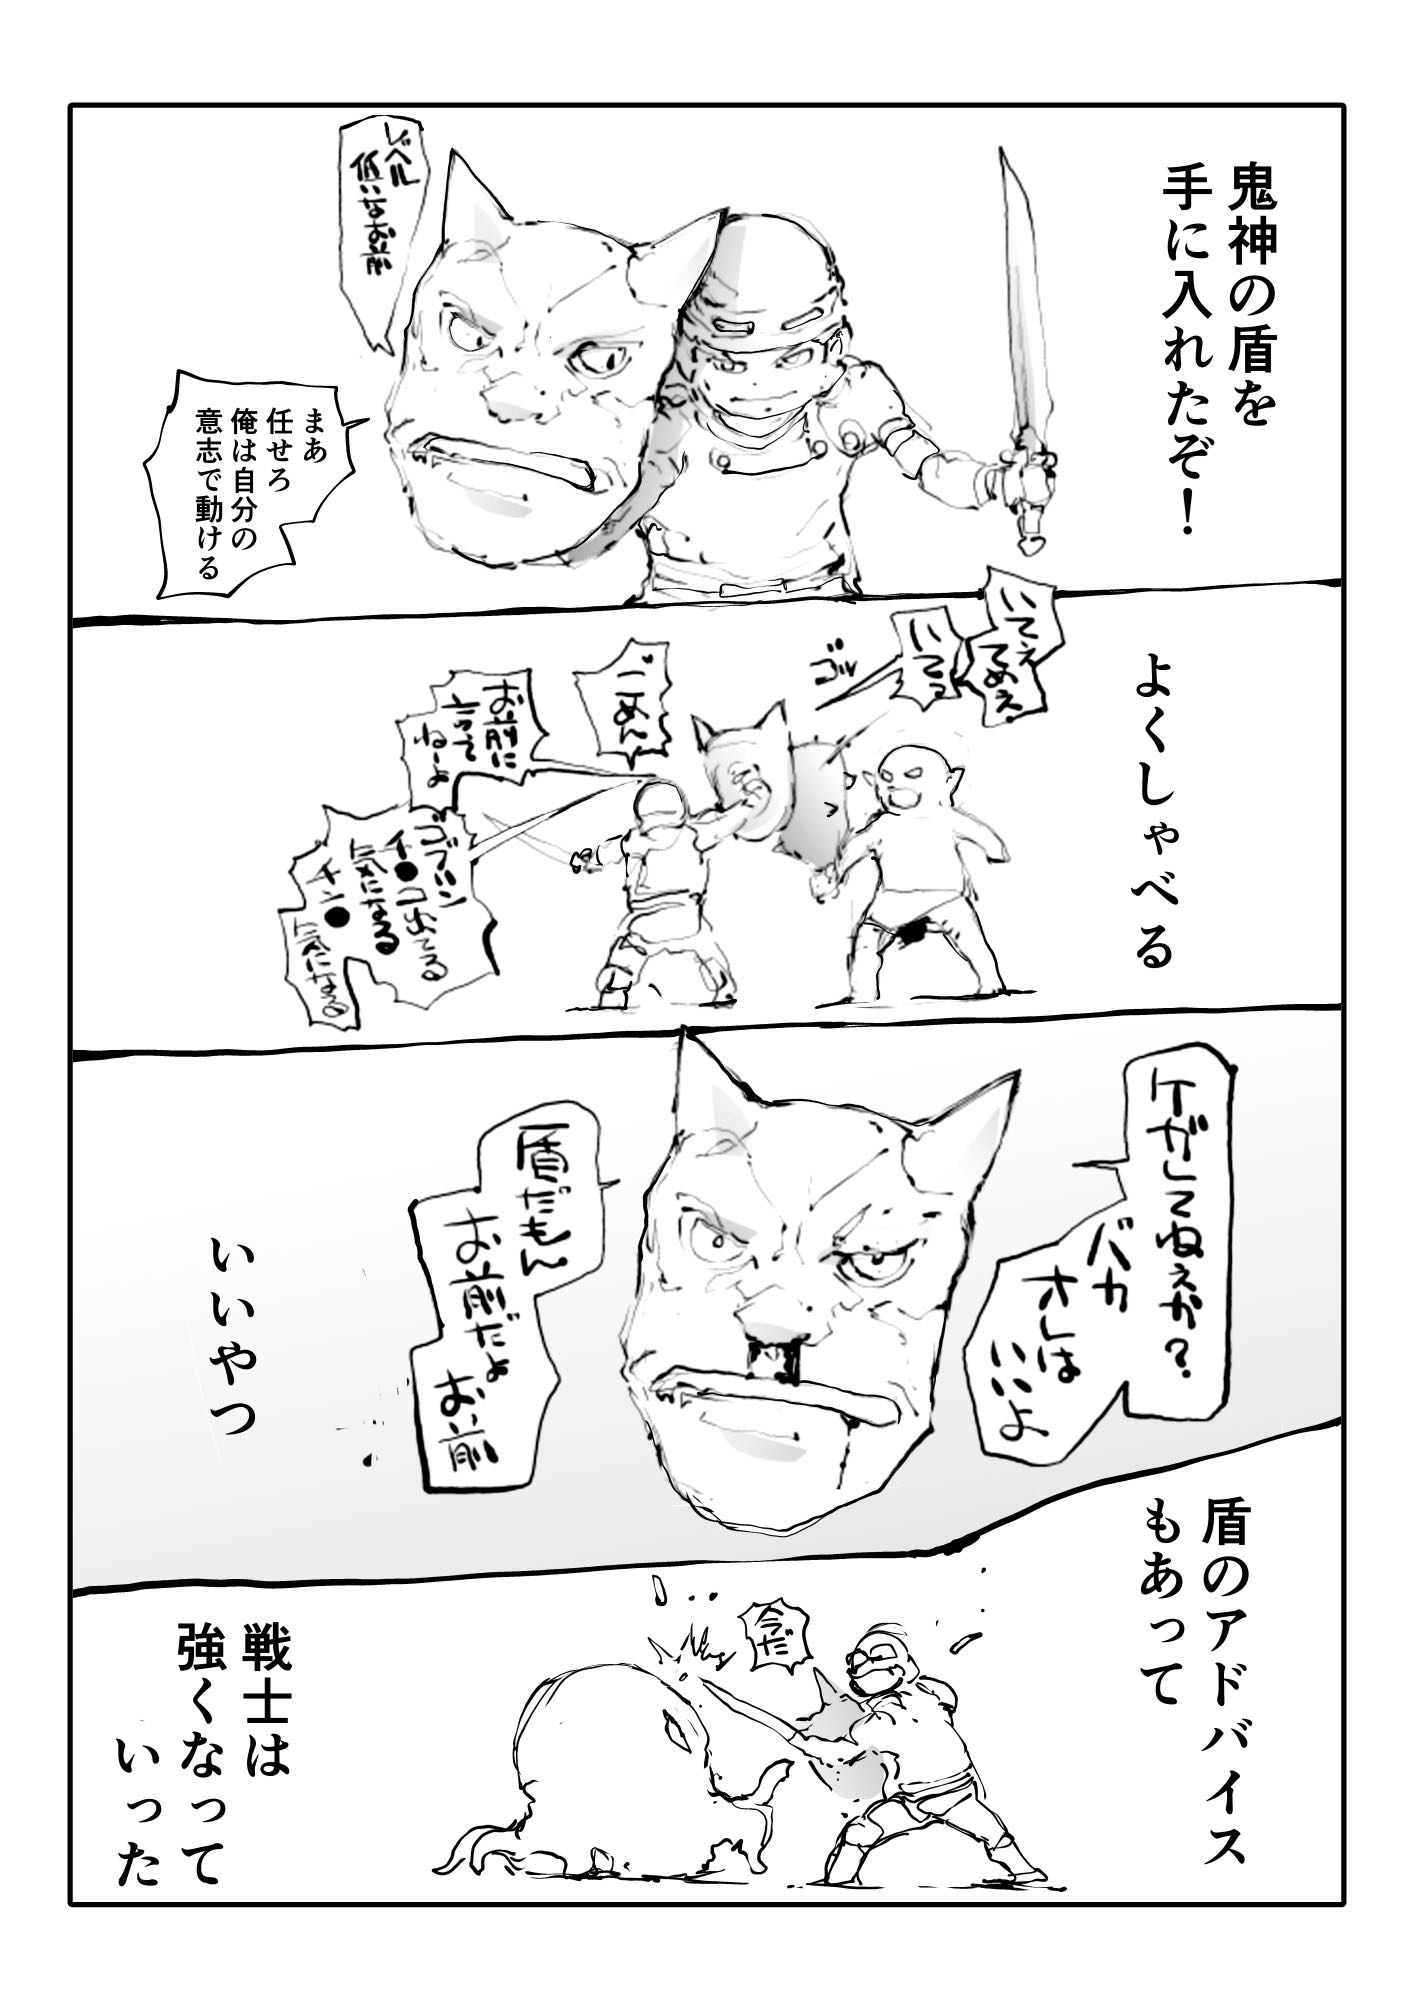 鬼神の盾を
手に入れたぞ！
レベル
低いなお前
まあ
任せろ
俺は自分の
意志で動ける
よくしゃべる
いてえ
てめえ
いてえ
ゴッ
ごめん
お前に
言って
ねーよ
ゴブリン
チ●コ出てる
気になる
チン●
気になる
ケガしてねぇか？
バカ
オレは
いいよ
盾だもん
お前だよ
お前
いいやつ
盾のアドバイス
もあって
今だ
戦士は
強くなって
いった